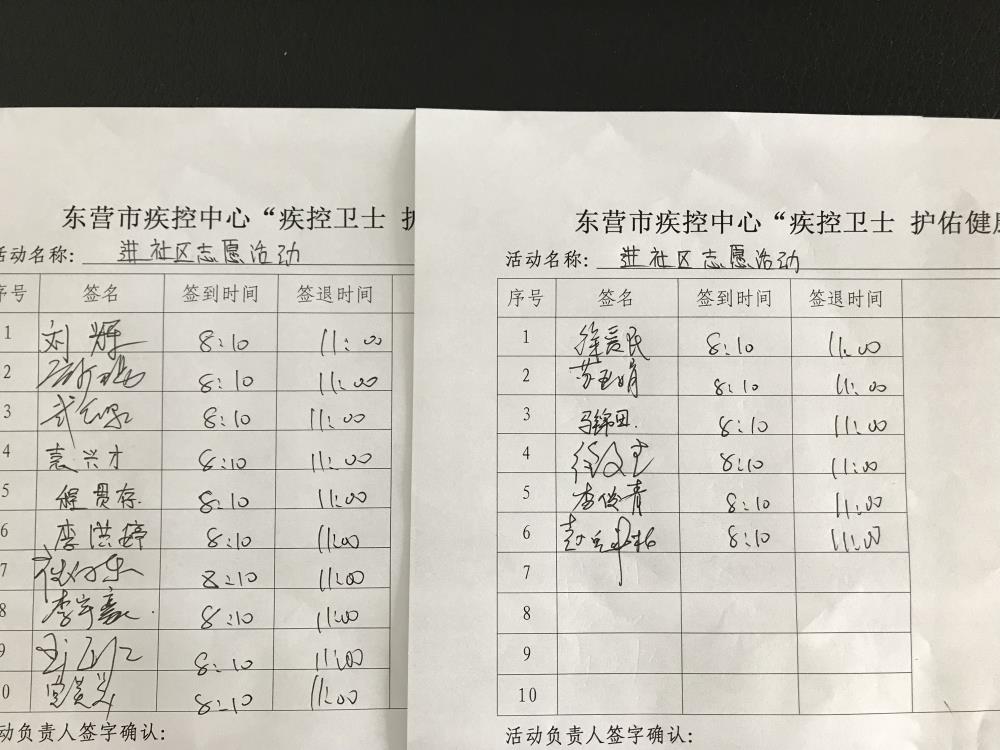 东营市疾控中心“疾控卫士 护
活动名称: 进社区志愿活动
序号 签名 签到时间 签退时间
1 刘辉 8:10 11:00
2 8:10 11:00
3 8:10 11:00
4 袁兴才 8:10 11:00
5 程贯存 8:10 11:00
6 李洪婷 8:10 11:00
7 8:10 11:00
8 李宇豪 8:10 11:00
9 8:10 11:00
0 8:10 11:00
动负责人签字确认:
东营市疾控中心“疾控卫士 护佑健康
活动名称: 进社区志愿活动
序号 签名 签到时间 签退时间
1 徐爱民 8:10 11:00
2 苏玉娟 8:10 11:00
3 马锦田 8:10 11:00
4 8:10 11:00
5 李俊青 8:10 11:00
6 8:10 11:00
7
8
9
10
活动负责人签字确认: